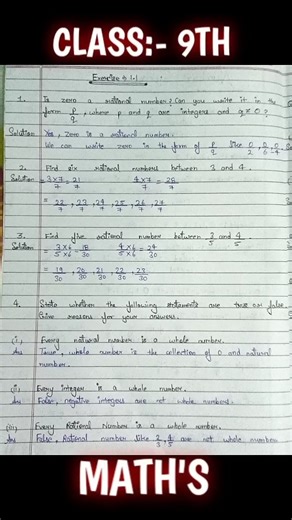 CLASS:- 9TH
Exercise # 1.1
1. Is zero a rational number? Can you write it in the
form p/q, where p and q are integers and q ≠ 0?
Solution Yes, zero is a rational number.
We can write zero in the form of p/q like 0/2, 0/6, 0/-4
2. Find six rational numbers between 3 and 4.
Solution = 3×7/7, 21/7 4×7/7 = 28/7
= 22/7, 23/7, 24/7, 25/7, 26/7, 27/7
3. Find five rational number between 3/5 and 4/5
Solution = 3×6/5×6 = 18/30 4×6/5×6 = 24/30
= 19/30, 20/30, 21/30, 22/30, 23/30
4. State whether the following statements are true or false.
Give reasons for your answers.
(i) Every natural number is a whole number.
An True, whole number is the collection of 0 and natural
number.
(ii) Every integer is a whole number.
An False, negative integers are not whole numbers.
(iii) Every Rational Number is a whole number.
An False, Rational number like 2/3, 4/5 are not whole numbers
MATH'S